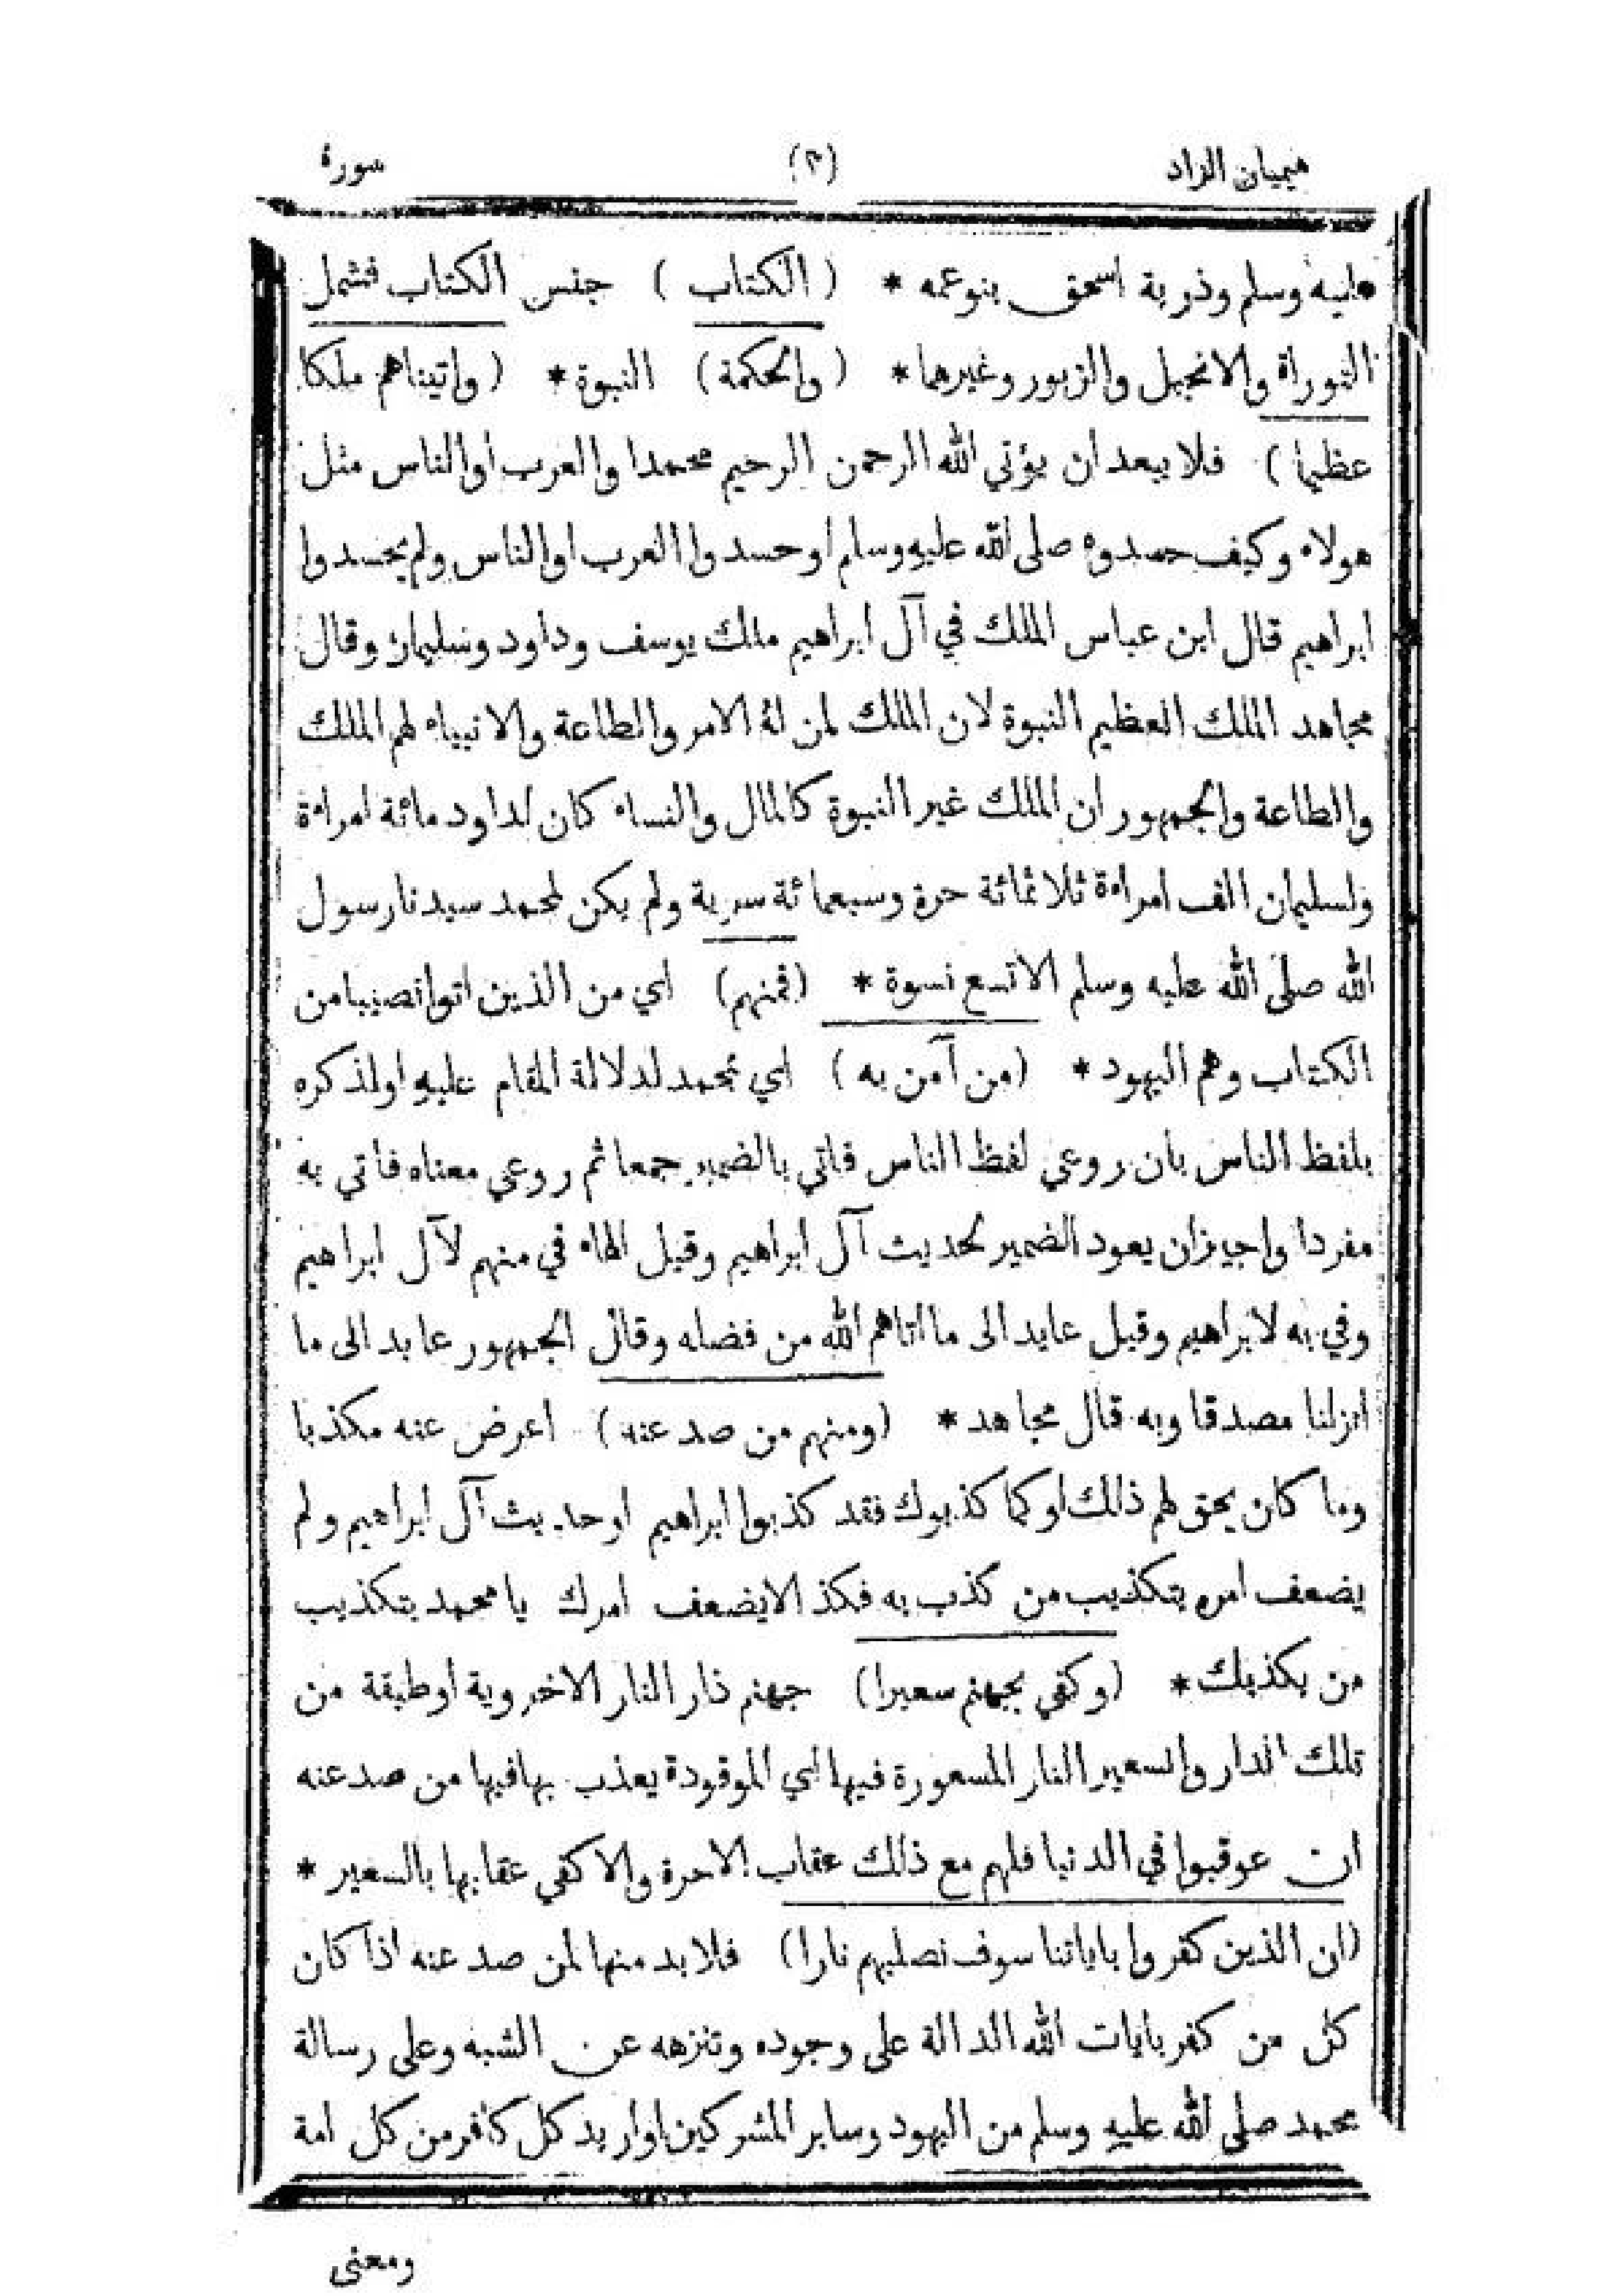 هيميان الزاد (٣) سورة
عليه وسلم وذرية اسحق بنوعمه * ( الكتاب ) جنس الكتاب فشمل
التوراة والانجيل والزبور وغيرهما * ( والحكمة ) النبوة * ( واتيناهم ملكا
عظيما ) فلا يبعد ان يؤتي الله الرحمن الرحيم محمدا والعرب اوالناس مثل
هولاء وكيف حسدوه صلى الله عليه وسلم اوحسدوا العرب اوالناس ولم يحسدوا
ابراهيم قال ابن عباس الملك في آل ابراهيم ملك يوسف وداود وسليمان وقال
مجاهد الملك العظيم النبوة لان الملك لمن له الامر والطاعة والانبياء لهم الملك
والطاعة والجمهور ان الملك غير النبوة كالمال والنساء كان لداود مائة امراءة
ولسليمان الف امراءة ثلاثمائة حرة وسبعمائة سرية ولم يكن لمحمد سيدنا رسول
الله صلى الله عليه وسلم الا تسع نسوة * (فمنهم) اي من الذين اتوا نصيبا من
الكتاب وهم اليهود * (من آمن به ) اي بمحمد لدلالة المقام عليه اولذكره
بلفظ الناس بان روعي لفظ الناس فاتي بالضمير جمعا ثم روعي معناه فاتي به
مفردا واجيزان يعود الضمير لحديث آل ابراهيم وقيل الهاء في منهم لآل ابراهيم
وفي به لابراهيم وقيل عايد الى ما اتاهم الله من فضله وقال الجمهور عايد الى ما
انزلنا مصدقا وبه قال مجاهد * (ومنهم من صد عنه ) اعرض عنه مكذبا
وما كان يحق لهم ذلك اوكما كذبوك فقد كذبوا ابراهيم اوحديث آل ابراهيم ولم
يضعف امره بتكذيب من كذب به فكذ الايضعف امرك يا محمد بتكذيب
من يكذبك * (وكفى بجهنم سعيرا) جهنم دار النار الاخروية اوطبقة من
تلك الدار والسعير النار المسعورة فيها اي الموقودة يعذب بها فيها من صد عنه
ان عوقبوا في الدنيا فلهم مع ذلك عقاب الاخرة والا كفى عقابها بالسعير *
(ان الذين كفروا باياتنا سوف نصليهم نارا) فلا بد منها لمن صد عنه اذا كان
كل من كفر بايات الله الدالة على وجوده وتنزهه عن الشبه وعلى رسالة
محمد صلى الله عليه وسلم من اليهود وساير المشركين اواريد كل كافر من كل امة
ومعنى